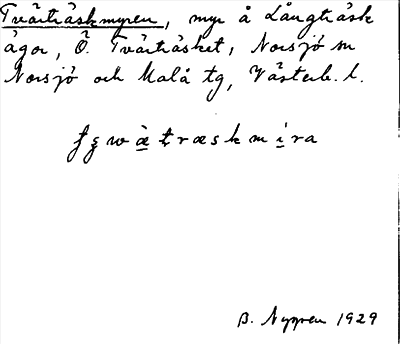 Tvärträskmyren, myr å Långträsk
ägor, Ö. Tvärträsket, Norsjö sn
Norsjö och Malå tg, Västerb. l.
B. Nygren 1929